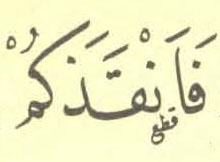 فَاَنْقَذَكُمْ
قطع